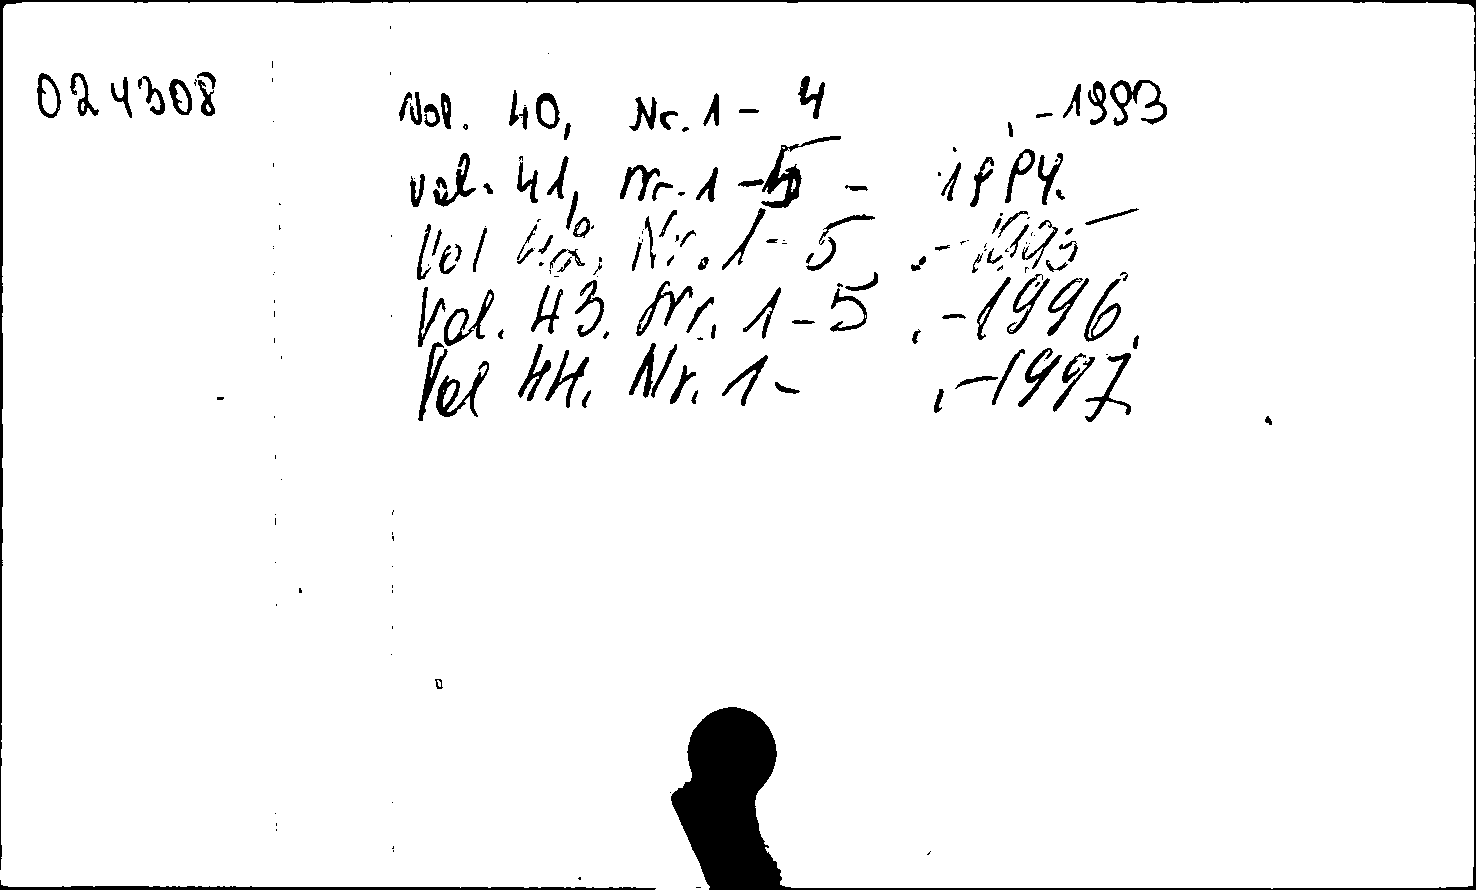 024308
Vol. 40, Nr. 1 - 4 , - 1993
Vol. 41, Nr. 1 - 5 - 1994.
Vol 42, Nr. 1 - 5 , - 1995
Vol. 43. Nr. 1 - 5 , - 1996.
Vol 44. Nr. 1 - , - 1997.